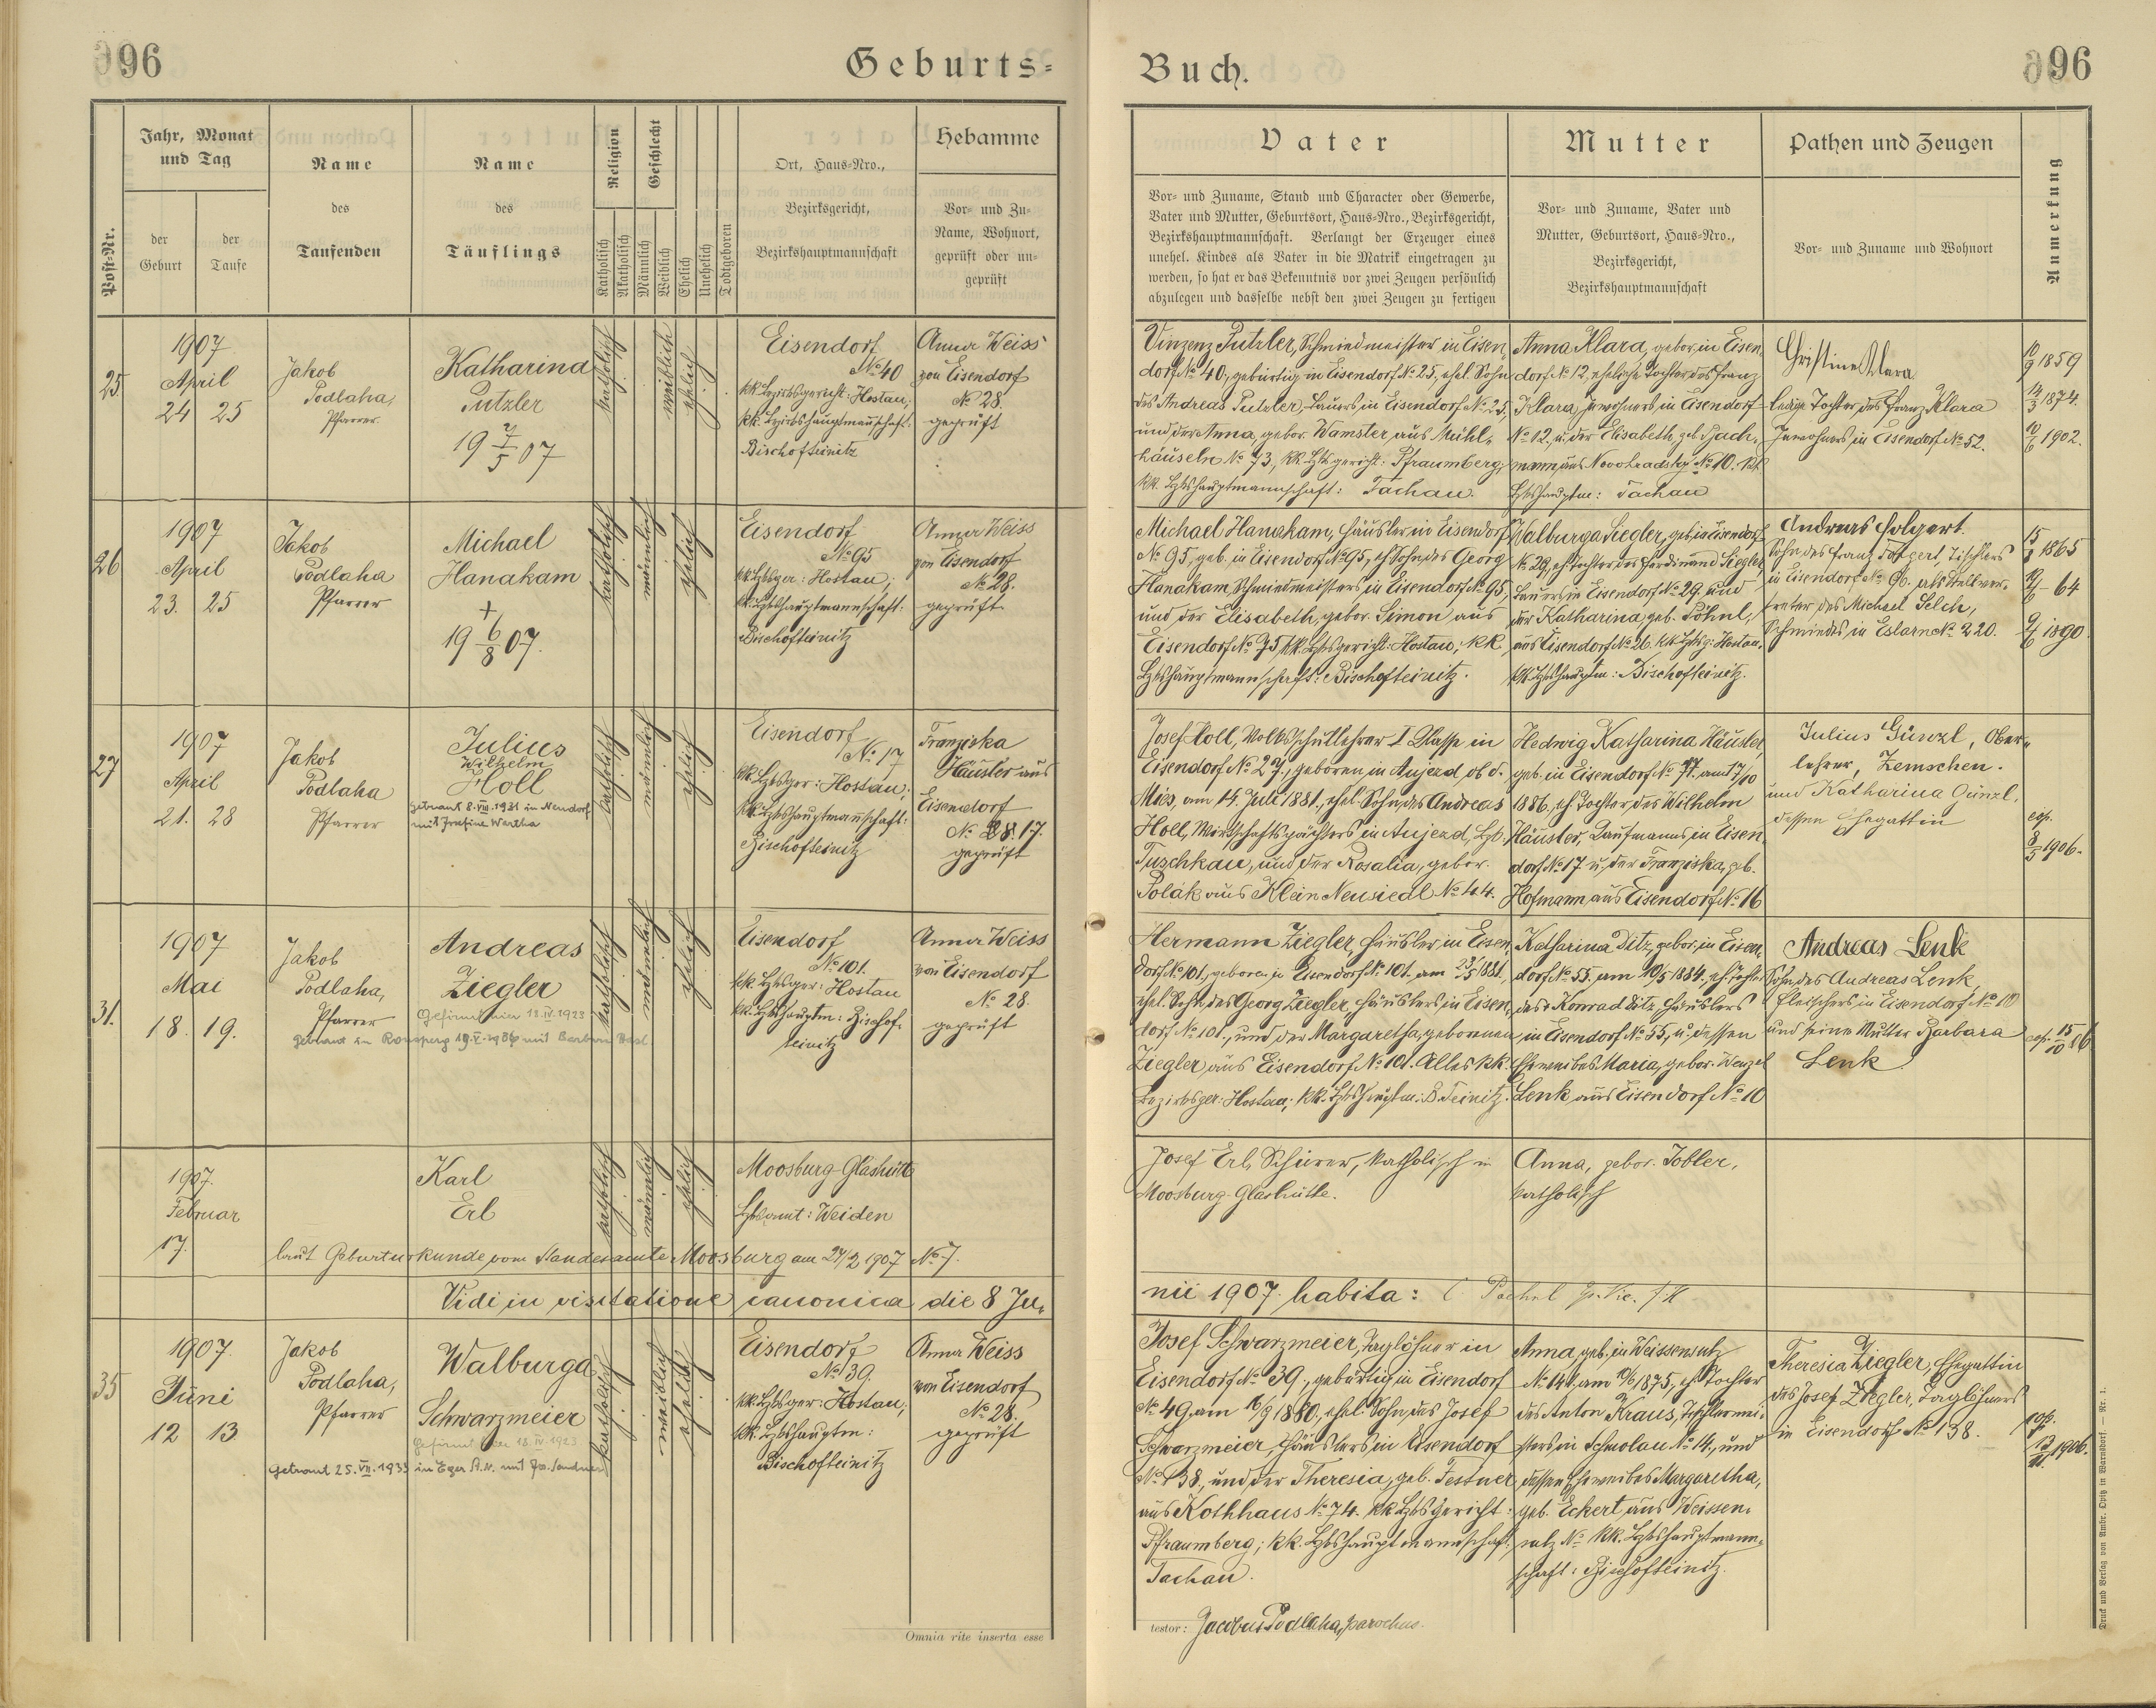 96
Geburts=
Post=Nr.
Jahr, Monat
und Tag
der
Geburt
der
Taufe
Name
des
Taufenden
Name
des
Täuflings
Religion
Katholisch
Akatholisch
Geschlecht
Männlich
Weiblich
Ehelich
Unehelich
Todtgeboren
Ort, Haus=Nro.,
Bezirksgericht,
Bezirkshauptmannschaft
Hebamme
Vor= und Zu=
Name, Wohnort,
geprüft oder un=
geprüft
25
1907
April
24 25
Jakob
Podlaha,
Pfarrer
Katharina
Putzler
19 07
katholisch
weiblich
ehelich
Eisendorf
No 40
kk. Bezirksgericht: Hostau,
kk. Bezirkshauptmannschaft:
Bischofteinitz
Anna Weiss
von Eisendorf
No 28.
geprüft
26
1907
April
23. 25
Jakob
Podlaha
Pfarrer
Michael
Hanakam
+
19 6/8 07.
katholisch
männlich
ehelich
Eisendorf
No 95
kk. Bzksger: Hostau;
kk. Bzkshauptmannschaft:
Bischofteinitz
Anna Weiss
von Eisendorf
No 28.
geprüft
27
1907
April
21. 28
Jakob
Podlaha
Pfarrer
Julius
Wilhelm
Holl
getraut 8.VIII.1931 in Neudorf
mit Josefine Wartha
katholisch
männlich
ehelich
Eisendorf
No 17
kk. Bzksger: Hostau;
kk. Bzkshauptmannschaft:
Bischofteinitz
Franziska
Häusler aus
Eisendorf
No 17.
geprüft
31.
1907
Mai
18. 19.
Jakob
Podlaha,
Pfarrer
Andreas
Ziegler
Gefirmt hier 18.IV.1923
getraut in Ronsperg mit Barbara
katholisch
männlich
ehelich
Eisendorf
No 101.
kk. Bzksger: Hostau
kk. Bzkshauptm: Bischof-
teinitz
Anna Weiss
von Eisendorf
No 28.
geprüft
1907.
Februar
17.
Karl
Erl
katholisch
männlich
ehelich
Moosburg-Glashütte
Bzksamt: Weiden
laut Geburturkunde vom Standesamte Moosburg am 27/2 1907 No 7.
Vidi in visitatione canonica die 8 Ju-
35
1907.
Juni
12 13
Jakob
Podlaha,
Pfarrer
Walburga
Schwarzmeier
Gefirmt hier 18.IV.1923
Getraut 25.VII.1933 in Eger St.N. mit Jos. Sandner
katholisch
weiblich
ehelich
Eisendorf
No 39.
kk. Bzksger: Hostau;
kk. Bzkshauptm:
Bischofteinitz
Anna Weiss
von Eisendorf
No 28.
geprüft
Omnia rite inserta esse
Buch.
96
Vater
Vor= und Zuname, Stand und Character oder Gewerbe,
Vater und Mutter, Geburtsort, Haus=Nro., Bezirksgericht,
Bezirkshauptmannschaft. Verlangt der Erzeuger eines
unehel. Kindes als Vater in die Matrik eingetragen zu
werden, so hat er das Bekenntnis vor zwei Zeugen persönlich
abzulegen und dasselbe nebst den zwei Zeugen zu fertigen
Mutter
Vor= und Zuname, Vater und
Mutter, Geburtsort, Haus=Nro.,
Bezirksgericht,
Bezirkshauptmannschaft
Pathen und Zeugen
Vor= und Zuname und Wohnort
Anmerkung
Vinzenz Putzler, Schmiedmeister in Eisen-
dorf No 40, gebürtig in Eisendorf No 25, ehel. Sohn
des Andreas Putzler, Bauers in Eisendorf No 25,
und der Anna, gebor. Wamsler aus Mühl-
häuseln No 73, kk. Bzksgericht: Pfraumberg;
kk. Bzkshauptmannschaft: Tachau.
Anna Klara, gebor. in Eisen-
dorf No 12, eheliche Tochter des Franz
Klara, Inwohners in Eisendorf
No 12, u. der Elisabeth, geb. Bach-
mann aus Novohradsky No 10. kk.
Bzkshauptm: Tachau
Christine Klara
ledige Tochter des Franz Klara
Inwohners in Eisendorf No 52.
10/9 1859
14/3 1874.
10/6 1902.
Michael Hanakam, Häusler in Eisendorf
No 95, geb. in Eisendorf No 95, eh. Sohn des Georg
Hanakam, Schmiedmeisters in Eisendorf No 95,
und der Elisabeth, gebor. Simon aus
Eisendorf No 75, kk. Bzksgericht: Hostau; kk.
Bzkshauptmannschaft: Bischofteinitz.
Walburga Siegler, geb. in Eisendorf
No 29, eh. Tochter des Ferdinand Siegler
Bauers in Eisendorf No 29. und
der Katharina, geb. Böhnl,
aus Eisendorf No 26. kk. Bzksg: Hostau.
kk. Bzkshauptm: Bischofteinitz.
Andreas Folgert.
Sohn des Franz Folgert, Tischlers
in Eisendorf No 96. als Stellver-
treter des Michael Selch,
Schmiedes in Eslarn No 220.
1865
64
1890.
Josef Holl, Volksschullehrer I Klasse in
Eisendorf No 27., geboren in Aujezd, ob d.
Mies, am 14. Juli 1881., ehel. Sohn des Andreas
Holl, Wirtschaftspächters in Aujezd, Bzk.
Tuschkau, und der Rosalia, gebor.
Polák aus Klein Neusiedl No 44.
Hedwig Katharina Häusler,
geb. in Eisendorf No 17. am 17/10
1886, eh. Tochter des Wilhelm
Häusler, Kaufmanns in Eisen-
dorf No 17 u. der Franziska, geb.
Hofmann aus Eisendorf No 16
Julius Günzl, Ober-
lehrer, Zemschen.
und Katharina Günzl,
dessen Ehegattin
cop.
8/5 1906.
Hermann Ziegler, Häusler in Eisen-
dorf No 101., geboren in Eisendorf No 101. am 23/5 1881,
ehel. Sohn des Georg Ziegler, Häuslers in Eisen-
dorf No 101., und der Margaretha, gebornen
Ziegler aus Eisendorf No 101. Alles kk.
Bezirksger: Hostau; kk. Bzkshauptm: B. Teinitz.
Katharina Ditz, gebor. in Eisen-
dorf No 55. am 10/5 1884., eh. Tochter
des Konrad Ditz, Häuslers
in Eisendorf No 55, u. dessen
Eheweibes Maria, gebor. Wenzel
Lenk aus Eisendorf No 10
Andreas Lenk
Sohn des Andreas Lenk,
Fleischers in Eisendorf No 10
und seine Mutter Barbara
Lenk
cop. 15/10 06
Josef Erl, Schürer, katholisch in
Moosburg-Glashütte.
Anna, gebor. Tobler,
katholisch
nii 1907. habita:
Josef Schwarzmeier, Taglöhner in
Eisendorf No 39., gebürtig in Eisendorf
No 49, am 16/9 1880, ehel. Sohn des Josef
Schwarzmeier, Häuslers in Eisendorf
No 138., und der Theresia, geb. Festner
aus Kothhaus No 74. kk. Bzksgericht:
Pfraumberg; kk. Bzkshauptmannschaft:
Tachau.
Anna, geb. in Weissensulz
No 141, am 19/6 1875., eh. Tochter
des Anton Kraus, Tischlermei-
sters in Schmolau No 14., und
dessen Eheweibes Margaretha,
geb. Eckert aus Weissen-
sulz No kk. Bzkshauptmann-
schaft: Bischofteinitz.
Theresia Ziegler, Ehegattin
des Josef Ziegler, Taglöhners
in Eisendorf No 138.
cop.
1906.
testor: Jacobus Podlaha, parochus.
Druck und Verlag von Ambr. Opitz in Warnsdorf. — Nr. 1.